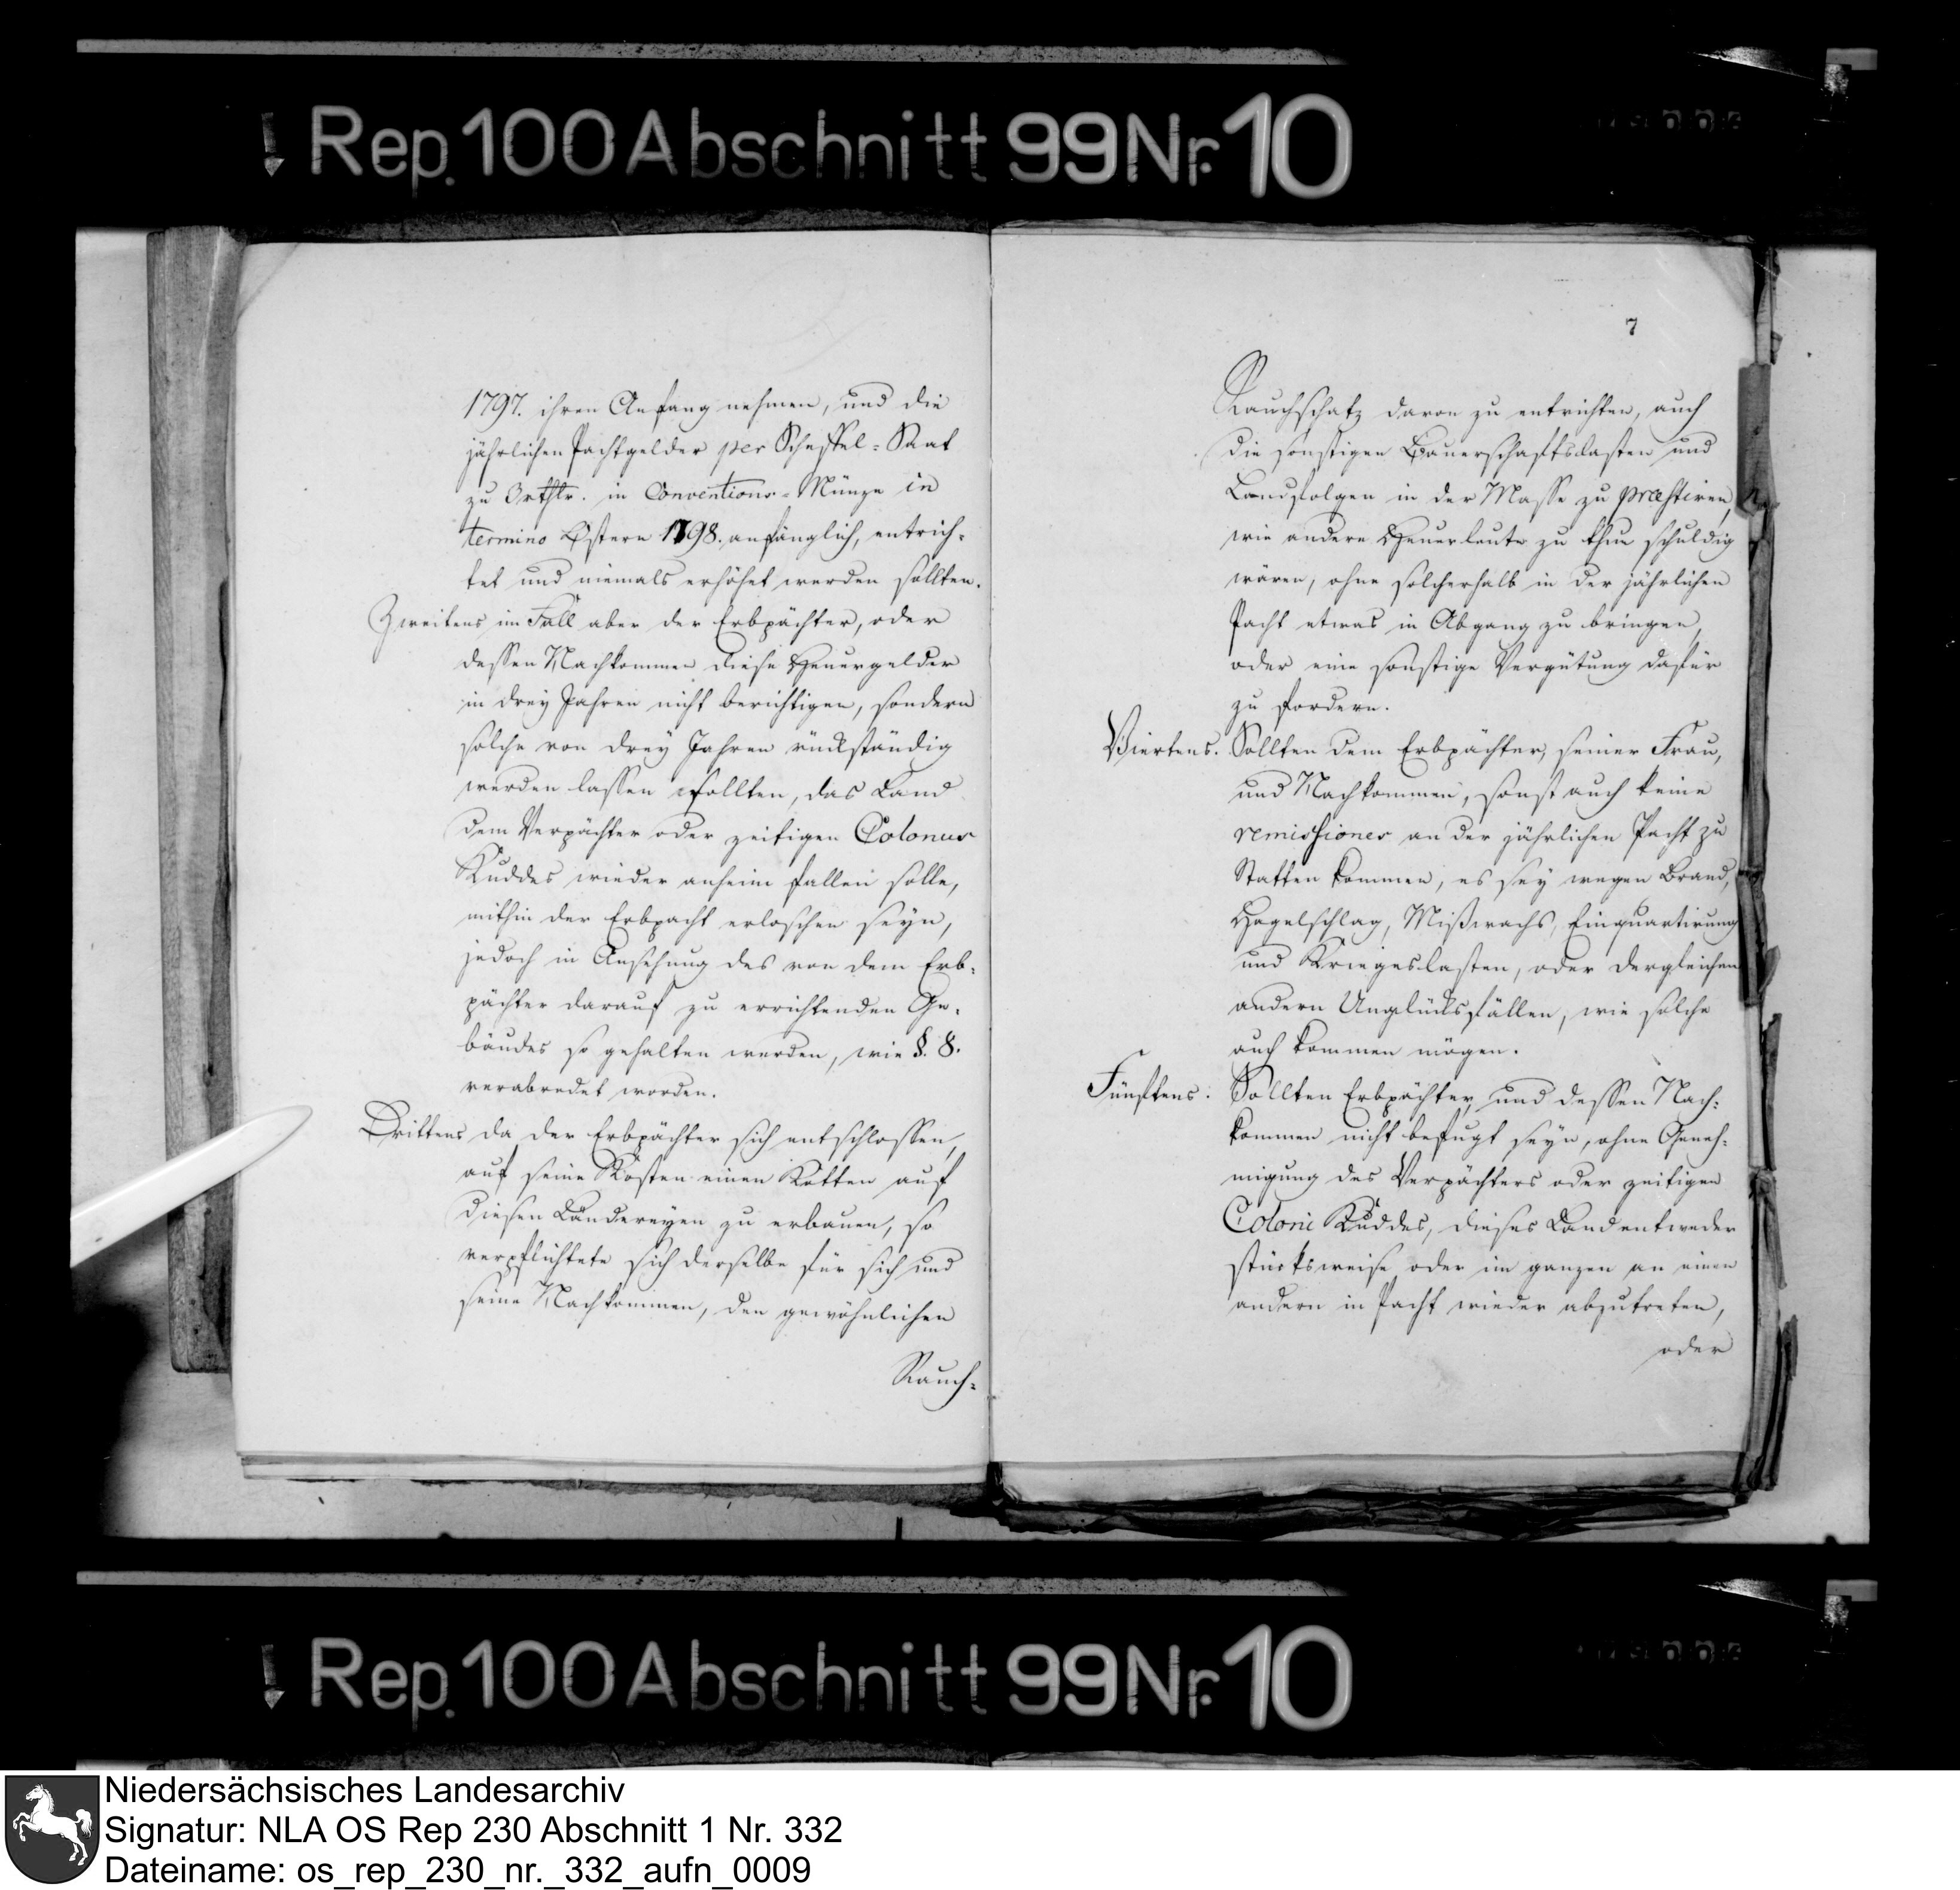 Rep. 100 Abschnitt 99 Nr. 10
1797. ihren Anfang nehmen, und die
jährlichen Pachtgelder per Scheffel-Saat
zu 3 rthlr. in Conventions-Münze in
termino Ostern 1798. anfänglich, entrich-
tet und niemals erhöhet werden sollten.
Zweitens im Fall aber der Erbpächter, oder
dessen Nachkommen diese Heuergelder
in drey Jahren nicht berichtigen, sondern
solche von drey Jahren rückständig
werden lassen sollten, das Land
dem Verpächter oder zeitigen Colonus
Kuddes wieder anheim fallen solle,
mithin der Erbpacht erloschen seyn,
jedoch in Ansehung des von dem Erb-
pächter darauf zu errichtenden Ge-
bäudes so gehalten werden, wie §. 8.
verabredet worden.
Drittens da der Erbpächter sich entschlossen,
auf seine Kosten einen Kotten auf
diesen Ländereyen zu erbauen, so
verpflichtete sich derselbe für sich und
seine Nachkommen, den gewöhnlichen
Rauch-
7
Rauchschatz davon zu entrichten, auch
die sonstigen Bauerschaftslasten und
Landfolgen in der Masse zu præstiren,
wie andere Heuerleute zu thun schuldig
wären, ohne solcherhalb in der jährlichen
Pacht etwas in Abgang zu bringen,
oder eine sonstige Vergütung dafür
zu fordern.
Viertens. Sollten dem Erbpächter, seiner Frau,
und Nachkommen, sonst auch keine
remissiones an der jährlichen Pacht zu
Statten kommen, es sey wegen Brand,
Hagelschlag, Mißwachs, Einquartirung
und Kriegeslasten, oder dergleichen
andern Unglücksfällen, wie solche
auch kommen mögen.
Fünftens. Sollten Erbpächter, und dessen Nach-
kommen nicht befugt seyn, ohne Geneh-
migung des Verpächters oder zeitigen
Coloni Kuddes, dieses Land entweder
stücksweise oder im ganzen an einen
andern in Pacht wieder abzutreten,
oder
Rep. 100 Abschnitt 99 Nr. 10
Niedersächsisches Landesarchiv
Signatur: NLA OS Rep 230 Abschnitt 1 Nr. 332
Dateiname: os_rep_230_nr._332_aufn_0009